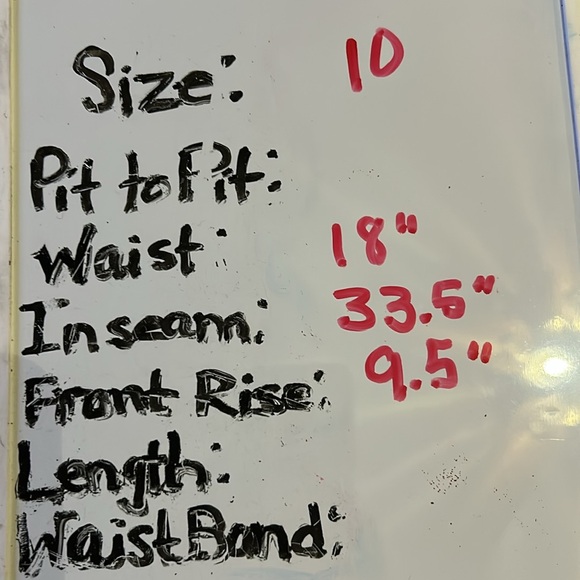 Size: 10
Pit to Pit:
Waist: 18"
Inseam: 33.5"
Front Rise: 9.5"
Length:
WaistBand: